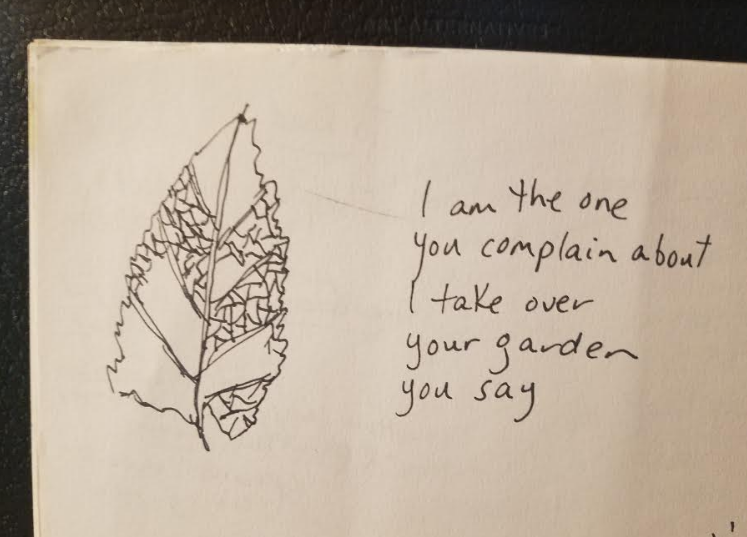 I am the one
you complain about
I take over
your garden
you say